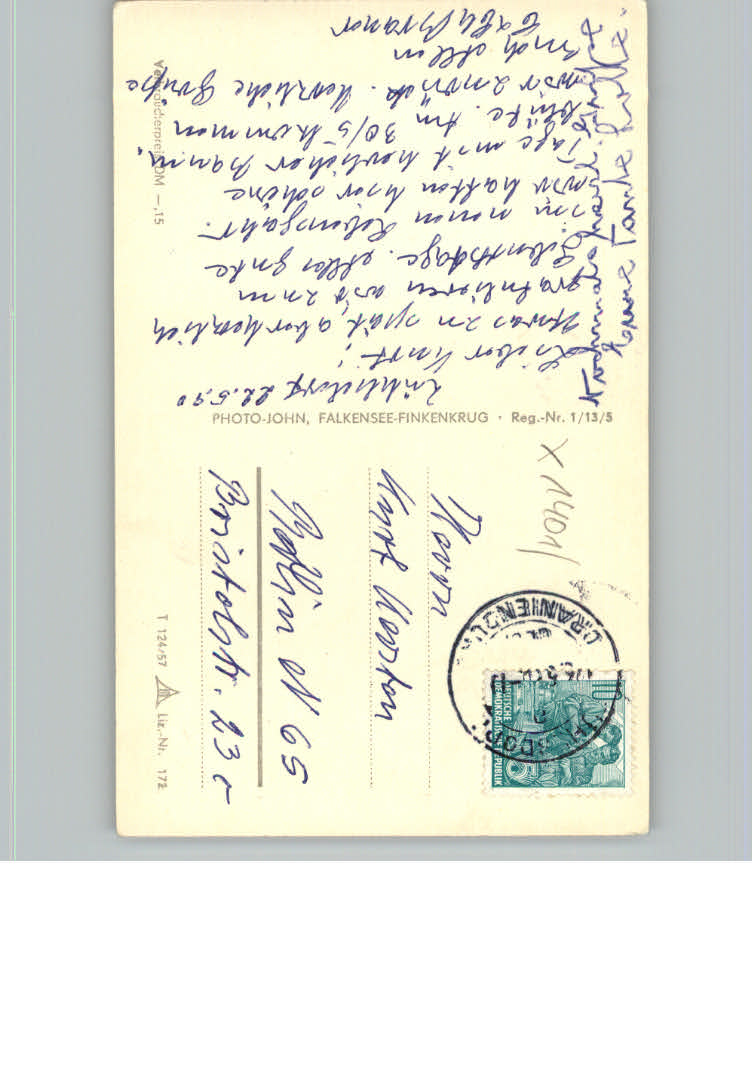 Zühlsdorf 22.5.
Lieber Kurt!
Etwas zu spät, aber herzlich
gratulieren wir zum
Geburtstage. Alles Gute
im neuen Lebensjahr.
Wir hatten hier schöne
Tage mit herrlicher
Am 30/5 kommen
wir zurück. Herzliche Grüße
Euch allen
Nochmals herzl. Grüße
Tante
PHOTO-JOHN, FALKENSEE-FINKENKRUG · Reg.-Nr. 1/13/5
Verbraucherpreis DM -,15
T 124/57 Liz.-Nr. 172
X 1401/
Herrn
Kurt
Berlin N 65
Bristolstr. 23c
10
DEUTSCHE
DEMOKRATISCHE REPUBLIK